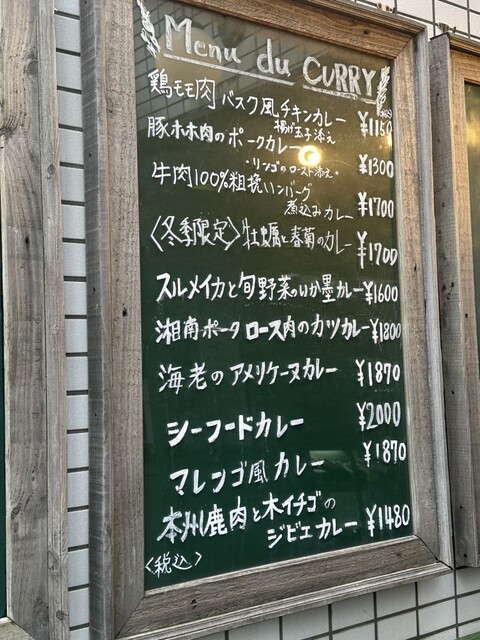 Menu du CURRY
鶏モモ肉バスク風チキンカレー ¥1150
揚げ玉子添え
豚ホホ肉のポークカレー ¥1300
・リンゴのロースト添え・
牛肉100%粗挽ハンバーグ
煮込みカレー ¥1700
〈冬季限定〉牡蠣と春菊のカレー ¥1700
スルメイカと旬野菜のいか墨カレー ¥1600
湘南ポータロース肉のカツカレー ¥1800
海老のアメリケーヌカレー ¥1870
シーフードカレー ¥2000
マレンゴ風カレー ¥1870
本州鹿肉と木イチゴの
ジビエカレー ¥1480
〈税込〉